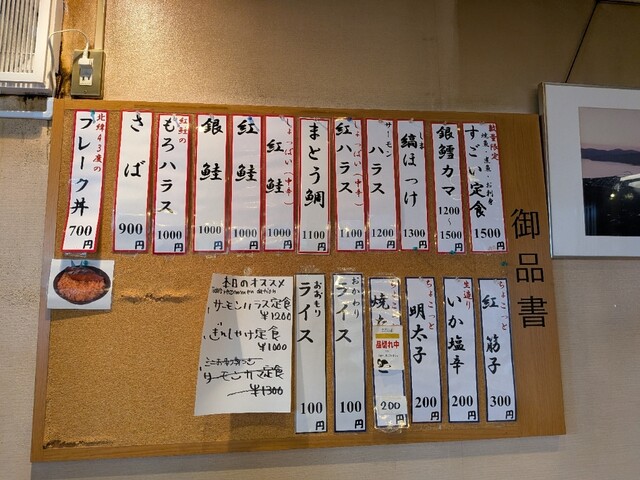 御品書
数量限定
焼魚、煮魚、お刺身
すごい定食
1500円
銀鱈カマ
1200〜
1500円
しま
縞ほっけ
1300円
サーモン
ハラス
1200円
しょっぱい(中辛)
紅ハラス
1100円
まとう鯛
1100円
しょっぱい(中辛)
紅鮭
1000円
紅鮭
1000円
銀鮭
1000円
紅鮭の
もろハラス
1000円
さば
900円
北緯43度の
フレーク丼
700円
ちょこっと
紅筋子
300円
生造り
いか塩辛
200円
ちょこっと
明太子
200円
焼た
品切れ中
200円
おかわり
ライス
100円
おおもり
ライス
100円
本日のオススメ
サーモンハラス定食
¥1200
ぎんしゃけ定食
¥1000
サーモンカマ定食
¥1300